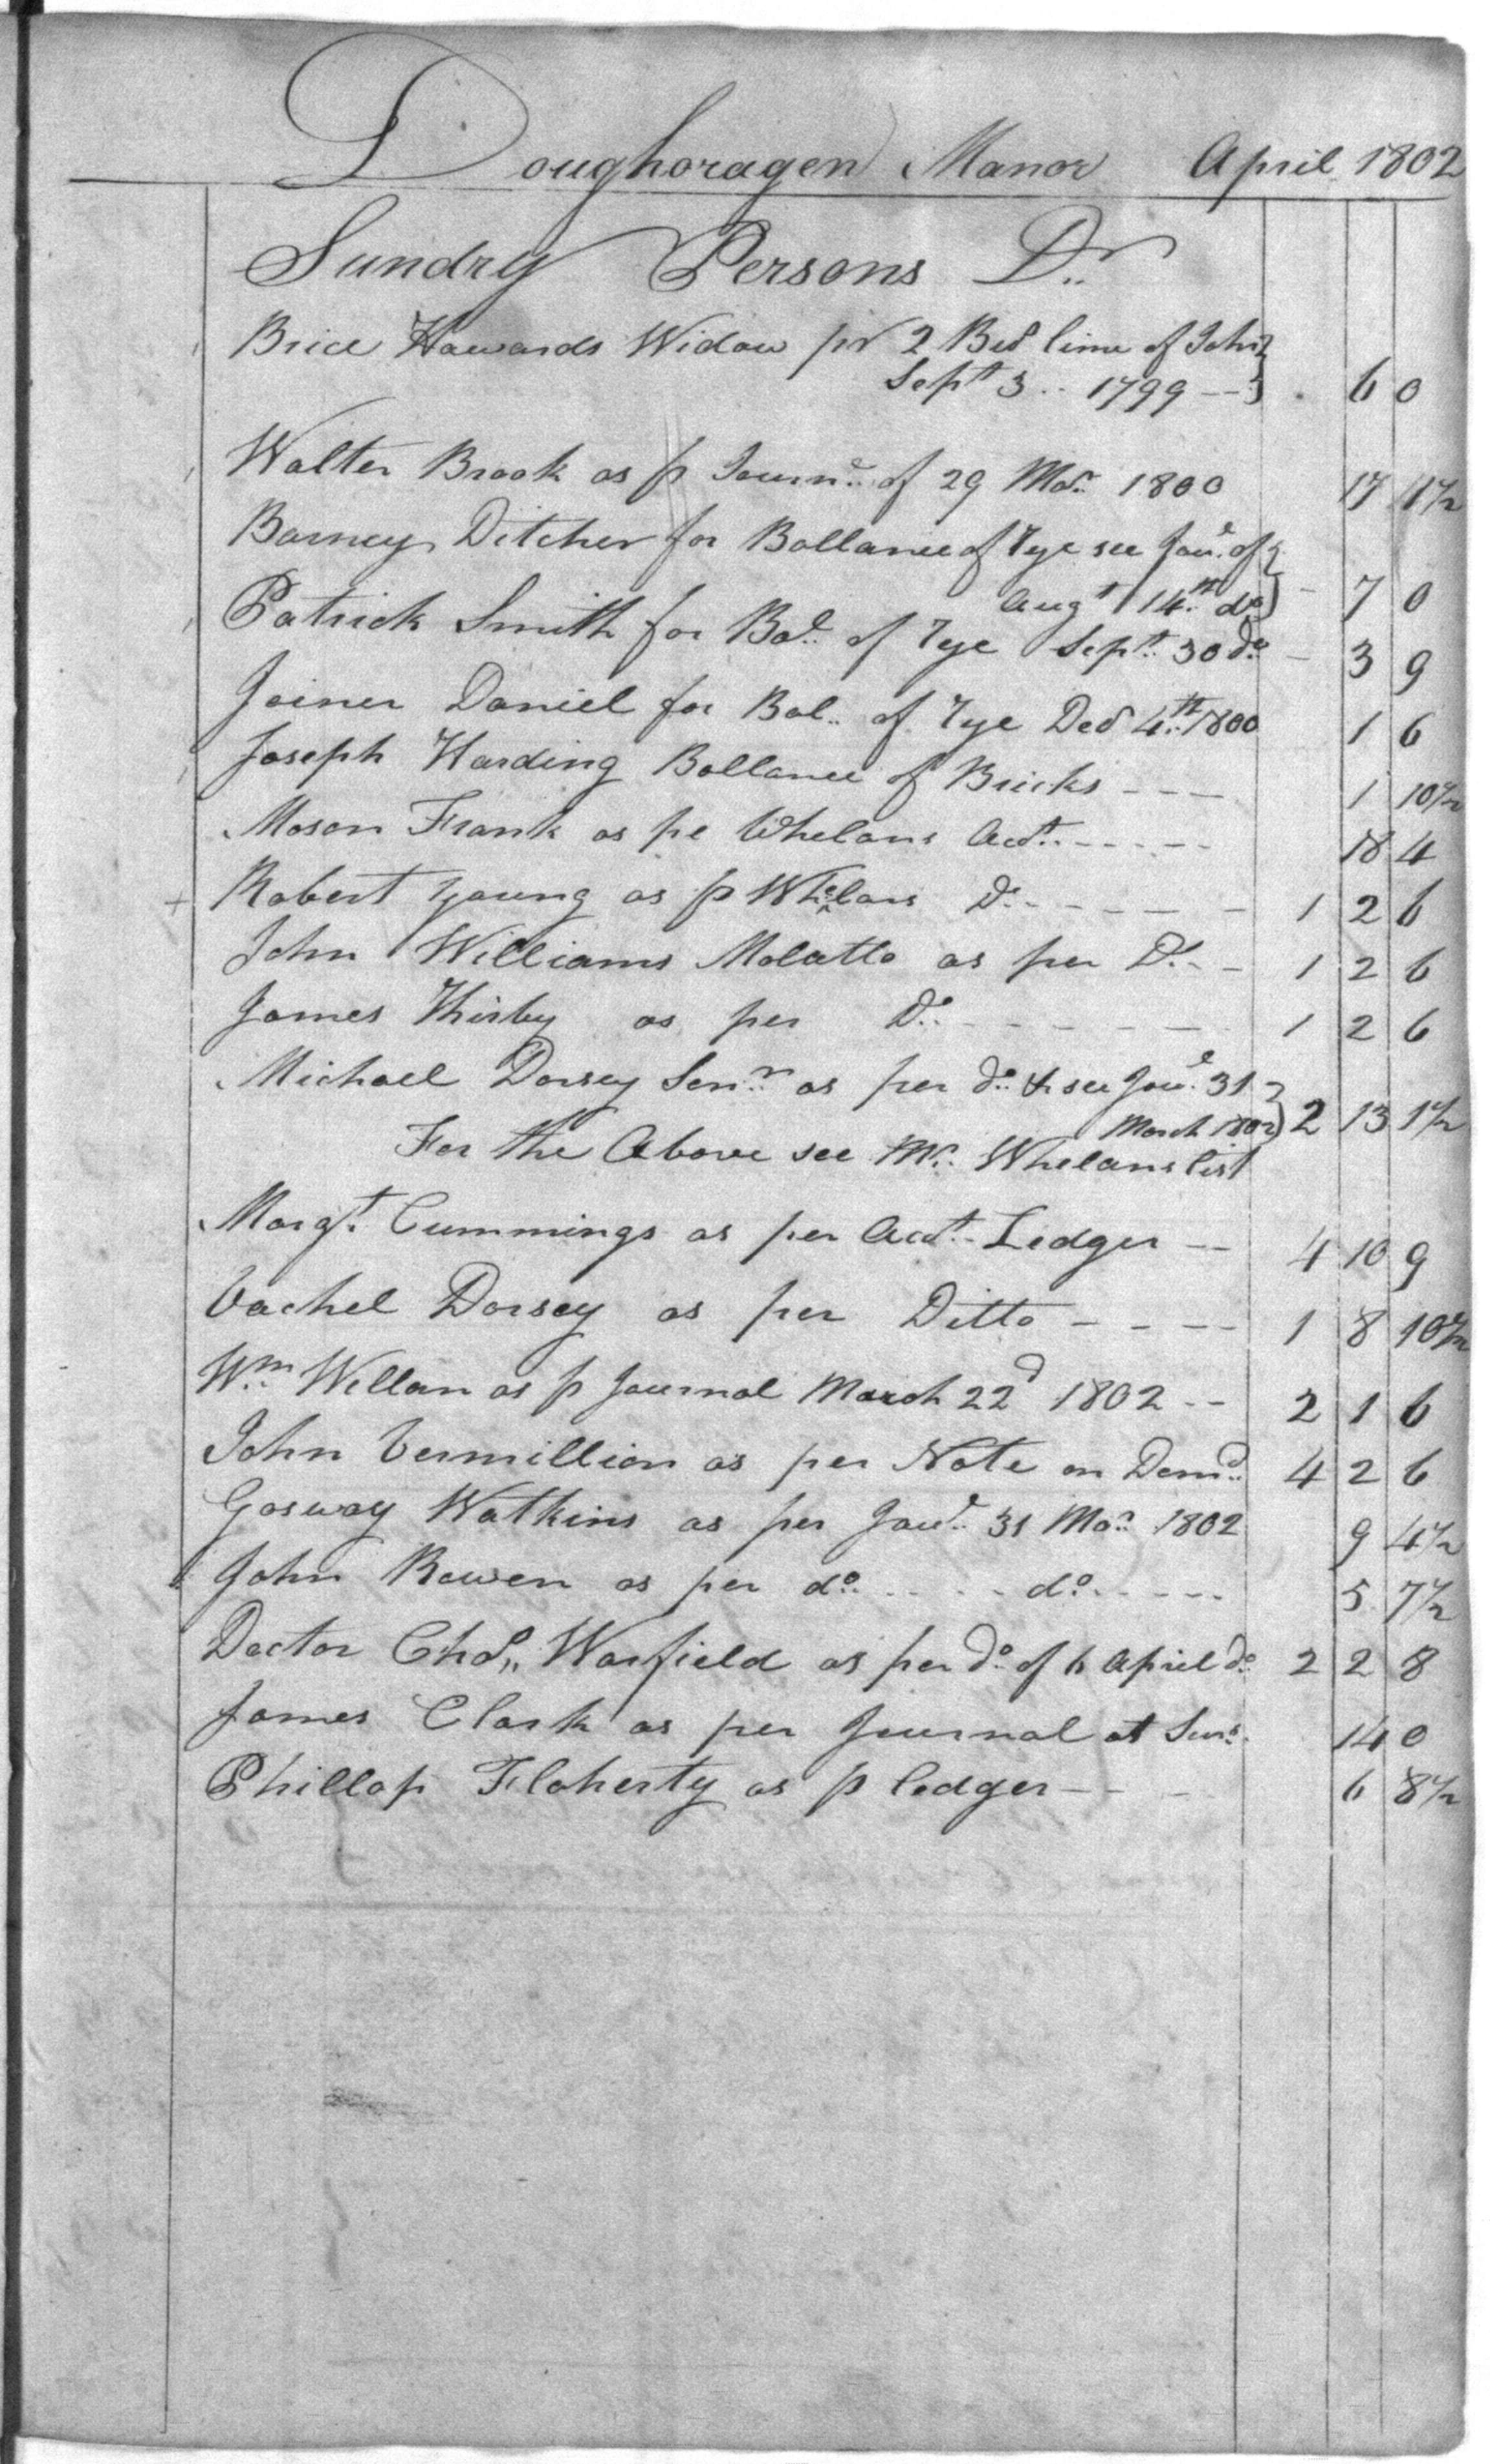 Doughoragen Manor April 1802
Sundry Persons Dr.
Brice Howards Widow pr 2 Bus lime of John
Sept 3 .. 1799 -- 6 0
Walter Brook as p Journl. of 29 Mar. 1800 17 1½
Barney Ditcher for Ballance of Rye see Joul. of
Augt 14th. do - 7 0
Patrick Smith for Bal. of Rye Sept. 30 do. - 3 9
Joiner Daniel for Bal.. of Rye Decr 4th. 1800 1 6
Joseph Harding Ballance of Bricks --- 1 10½
Mason Frank as pe Whelans Acct. ----- 18 4
+ Robert Young as p Whelans Do. ----- 1 2 6
John Williams Molatto as per Do. -- 1 2 6
James Thirby as per Do. ------ 1 2 6
Michael Dorsey Senr. as per do. & see Joul. 31
March 1802 2 13 1½
For the Above see Mr. Whelans list
Margt. Cummings as per Acct. Ledger -- 4 10 9
Vachel Dorsey as per Ditto ---- 1 8 10½
Wm. Wellan as p Journal March 22d 1802 -- 2 1 6
John Vermillion as per Note on Demd. 4 2 6
Gasway Watkins as per Joul. 31 Mar. 1802 9 4½
John Bowen as per do. .. -- do. ---- 5 7½
Doctor Chas. Warfield as per do. of 6 April do. 2 2 8
James Clark as per Journal at 14 0
Phillop Flaherty as p ledger -- - 6 8½